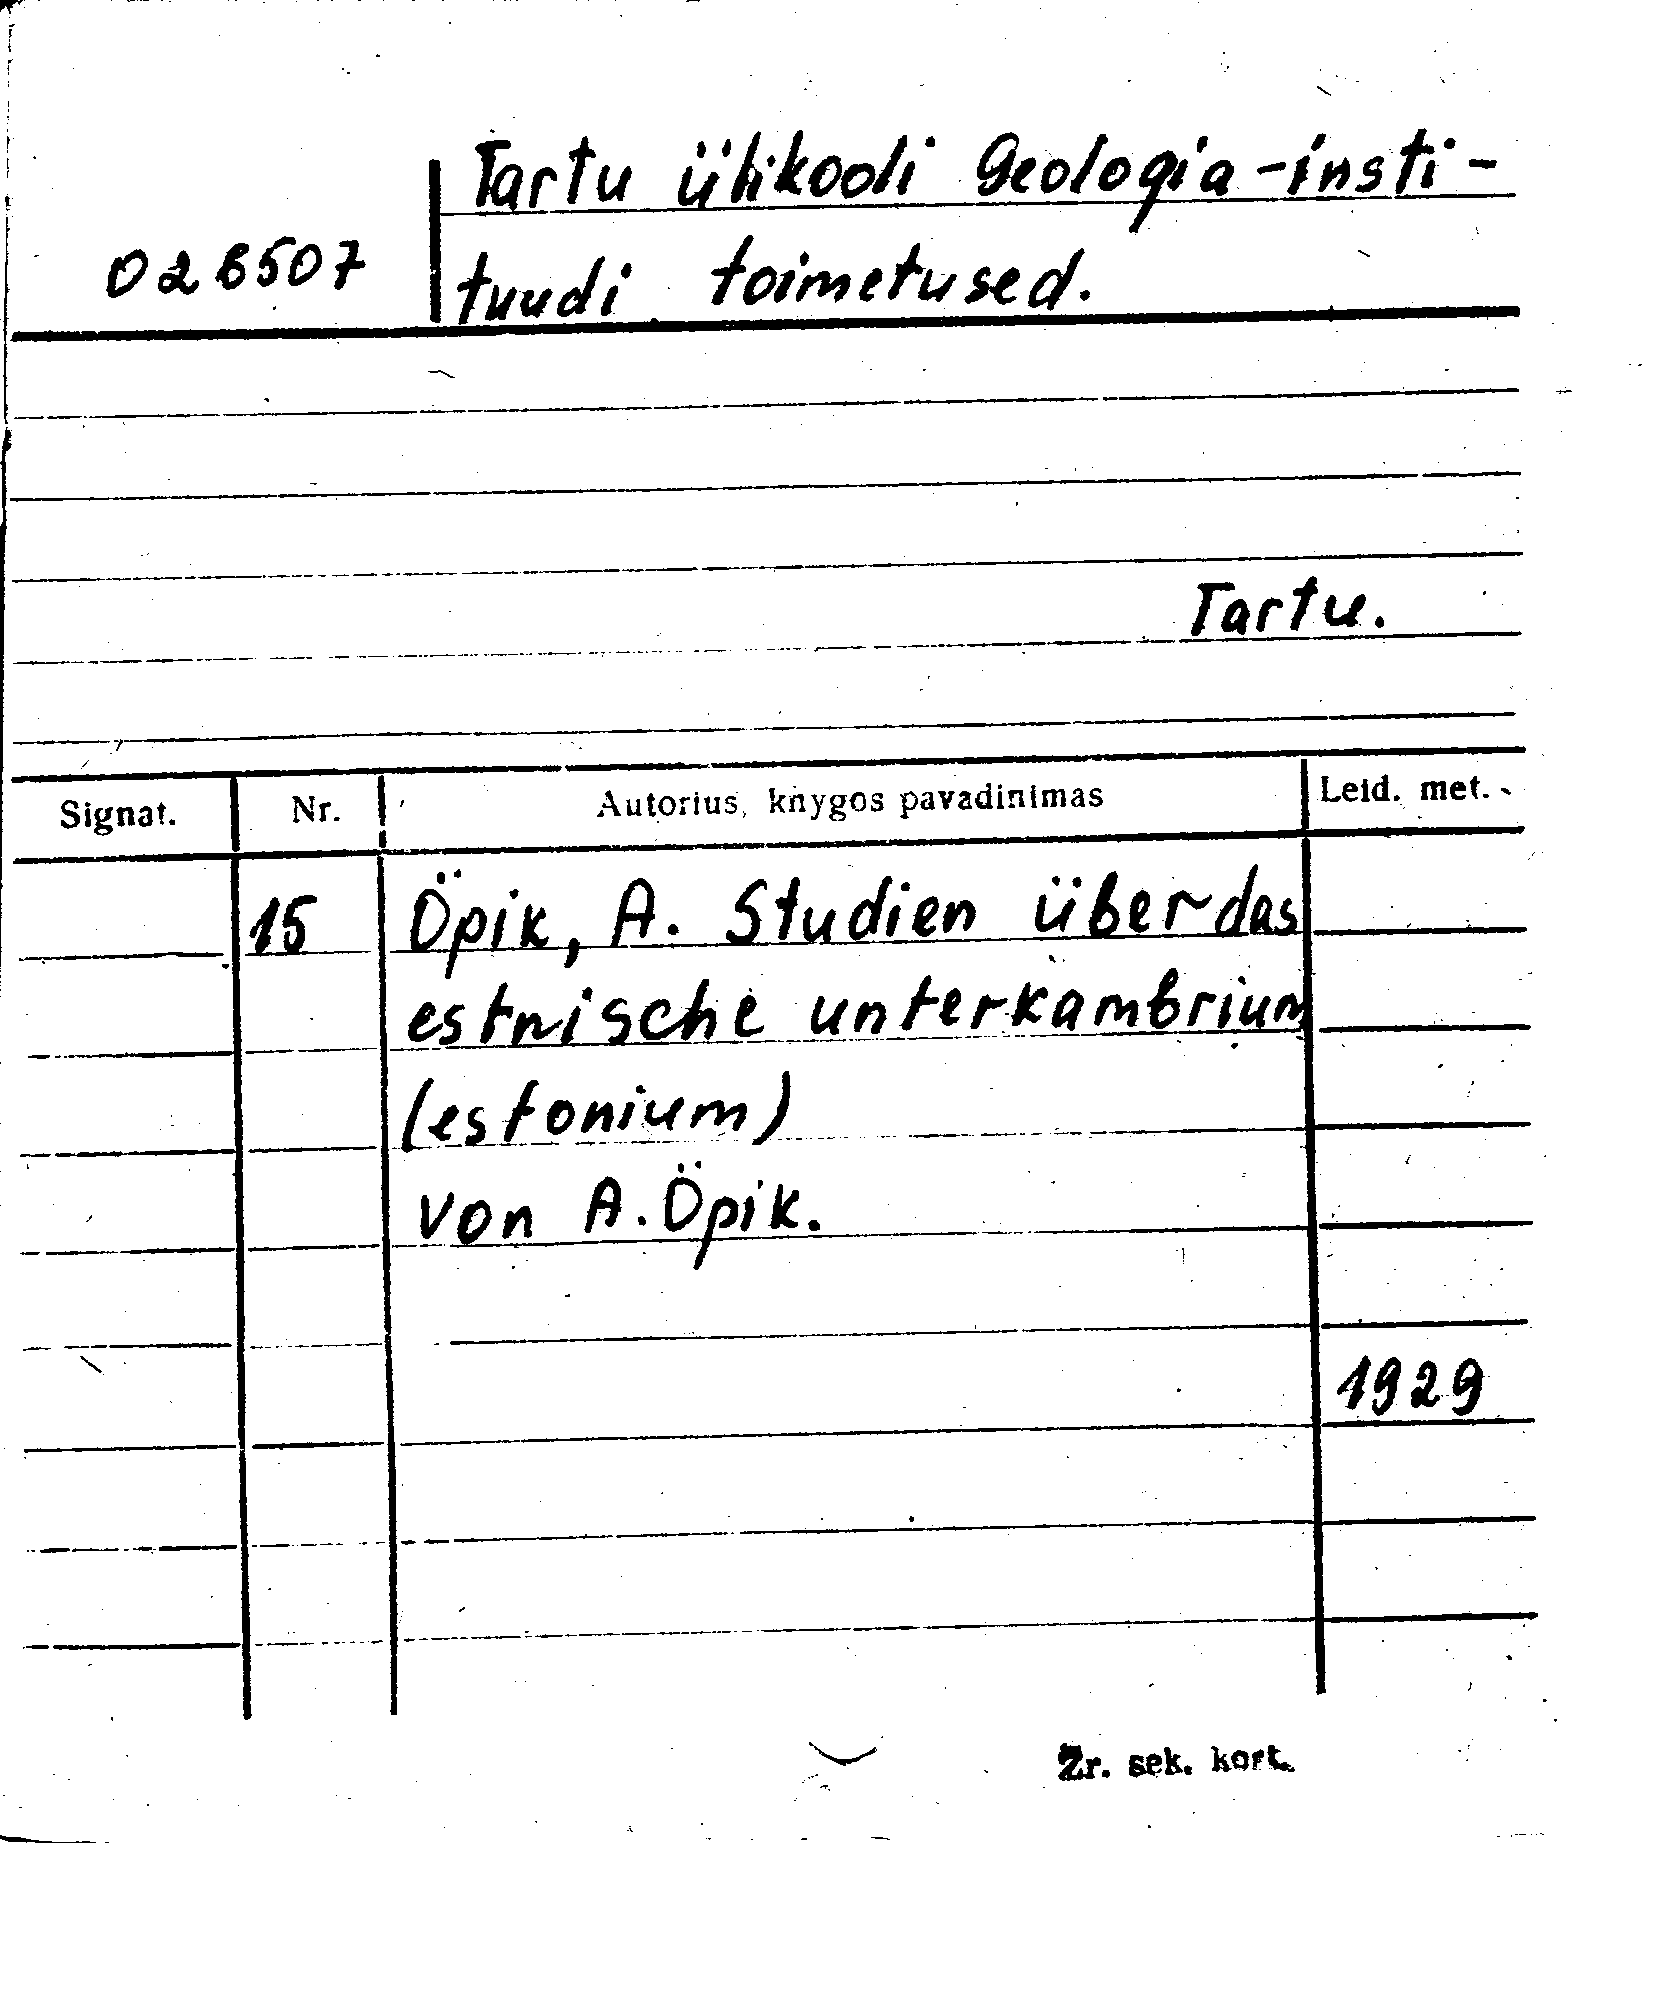 Tartu ülikooli Geologia-insti-
028507
tuudi toimetused.
Tartu.
Signat. Nr. Autorius, knygos pavadinimas Leid. met.
15 Öpik, A. Studien über das
estnische unterkambrium
(estonium)
von A. Öpik.
1929
Žr. sek. kort.